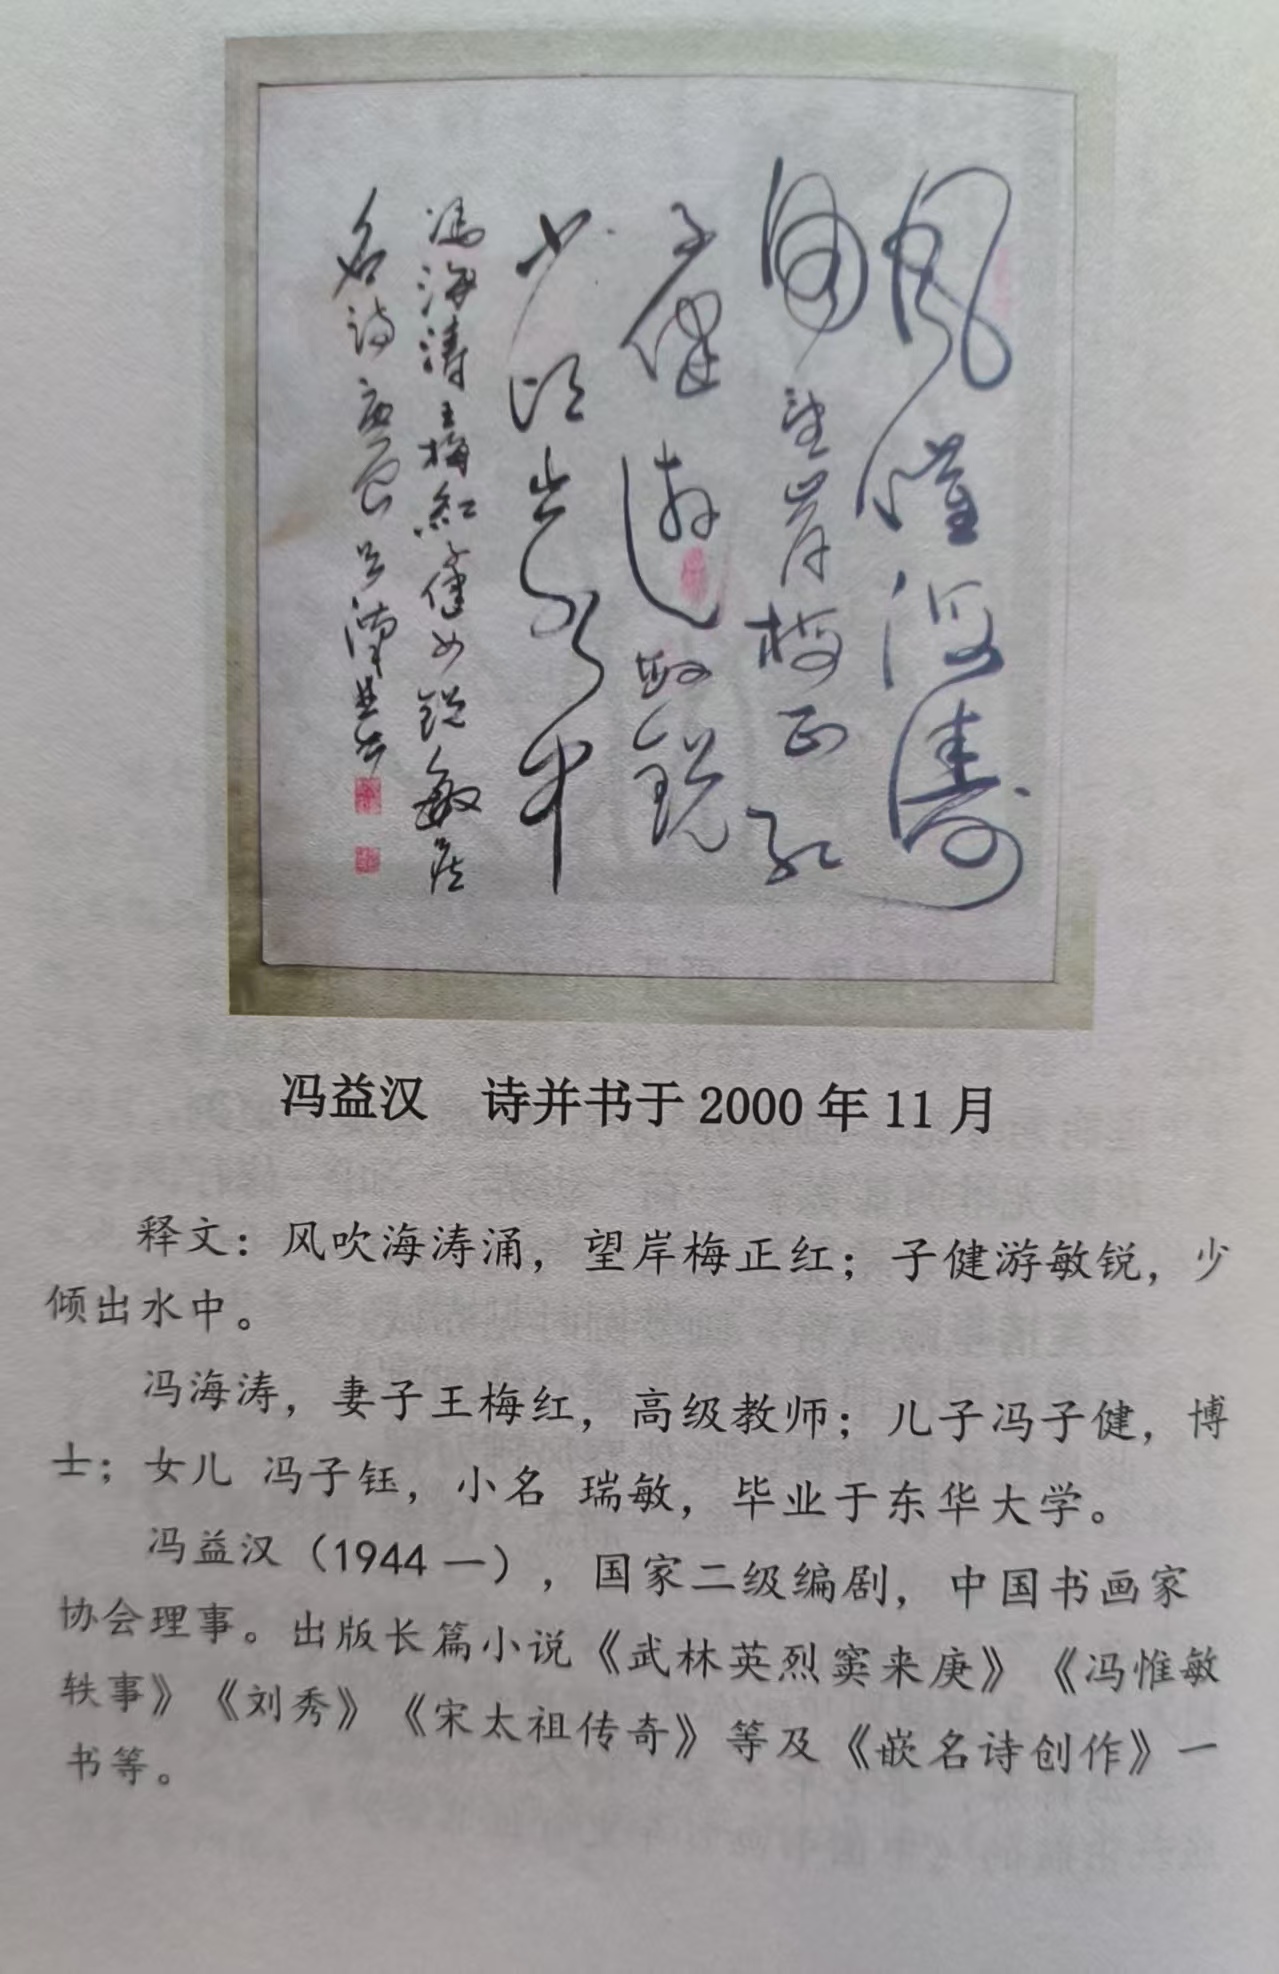 风海涛
望岸梅正红
子健游敏锐
少顷出水中
冯海涛王梅红子健女锐敏嵌
名诗庚辰
冯益汉　诗并书于2000年11月
释文：风吹海涛涌，望岸梅正红；子健游敏锐，少
倾出水中。
冯海涛，妻子王梅红，高级教师；儿子冯子健，博
士；女儿 冯子钰，小名 瑞敏，毕业于东华大学。
冯益汉（1944一），国家二级编剧，中国书画家
协会理事。出版长篇小说《武林英烈窦来庚》《冯惟敏
轶事》《刘秀》《宋太祖传奇》等及《嵌名诗创作》一
书等。